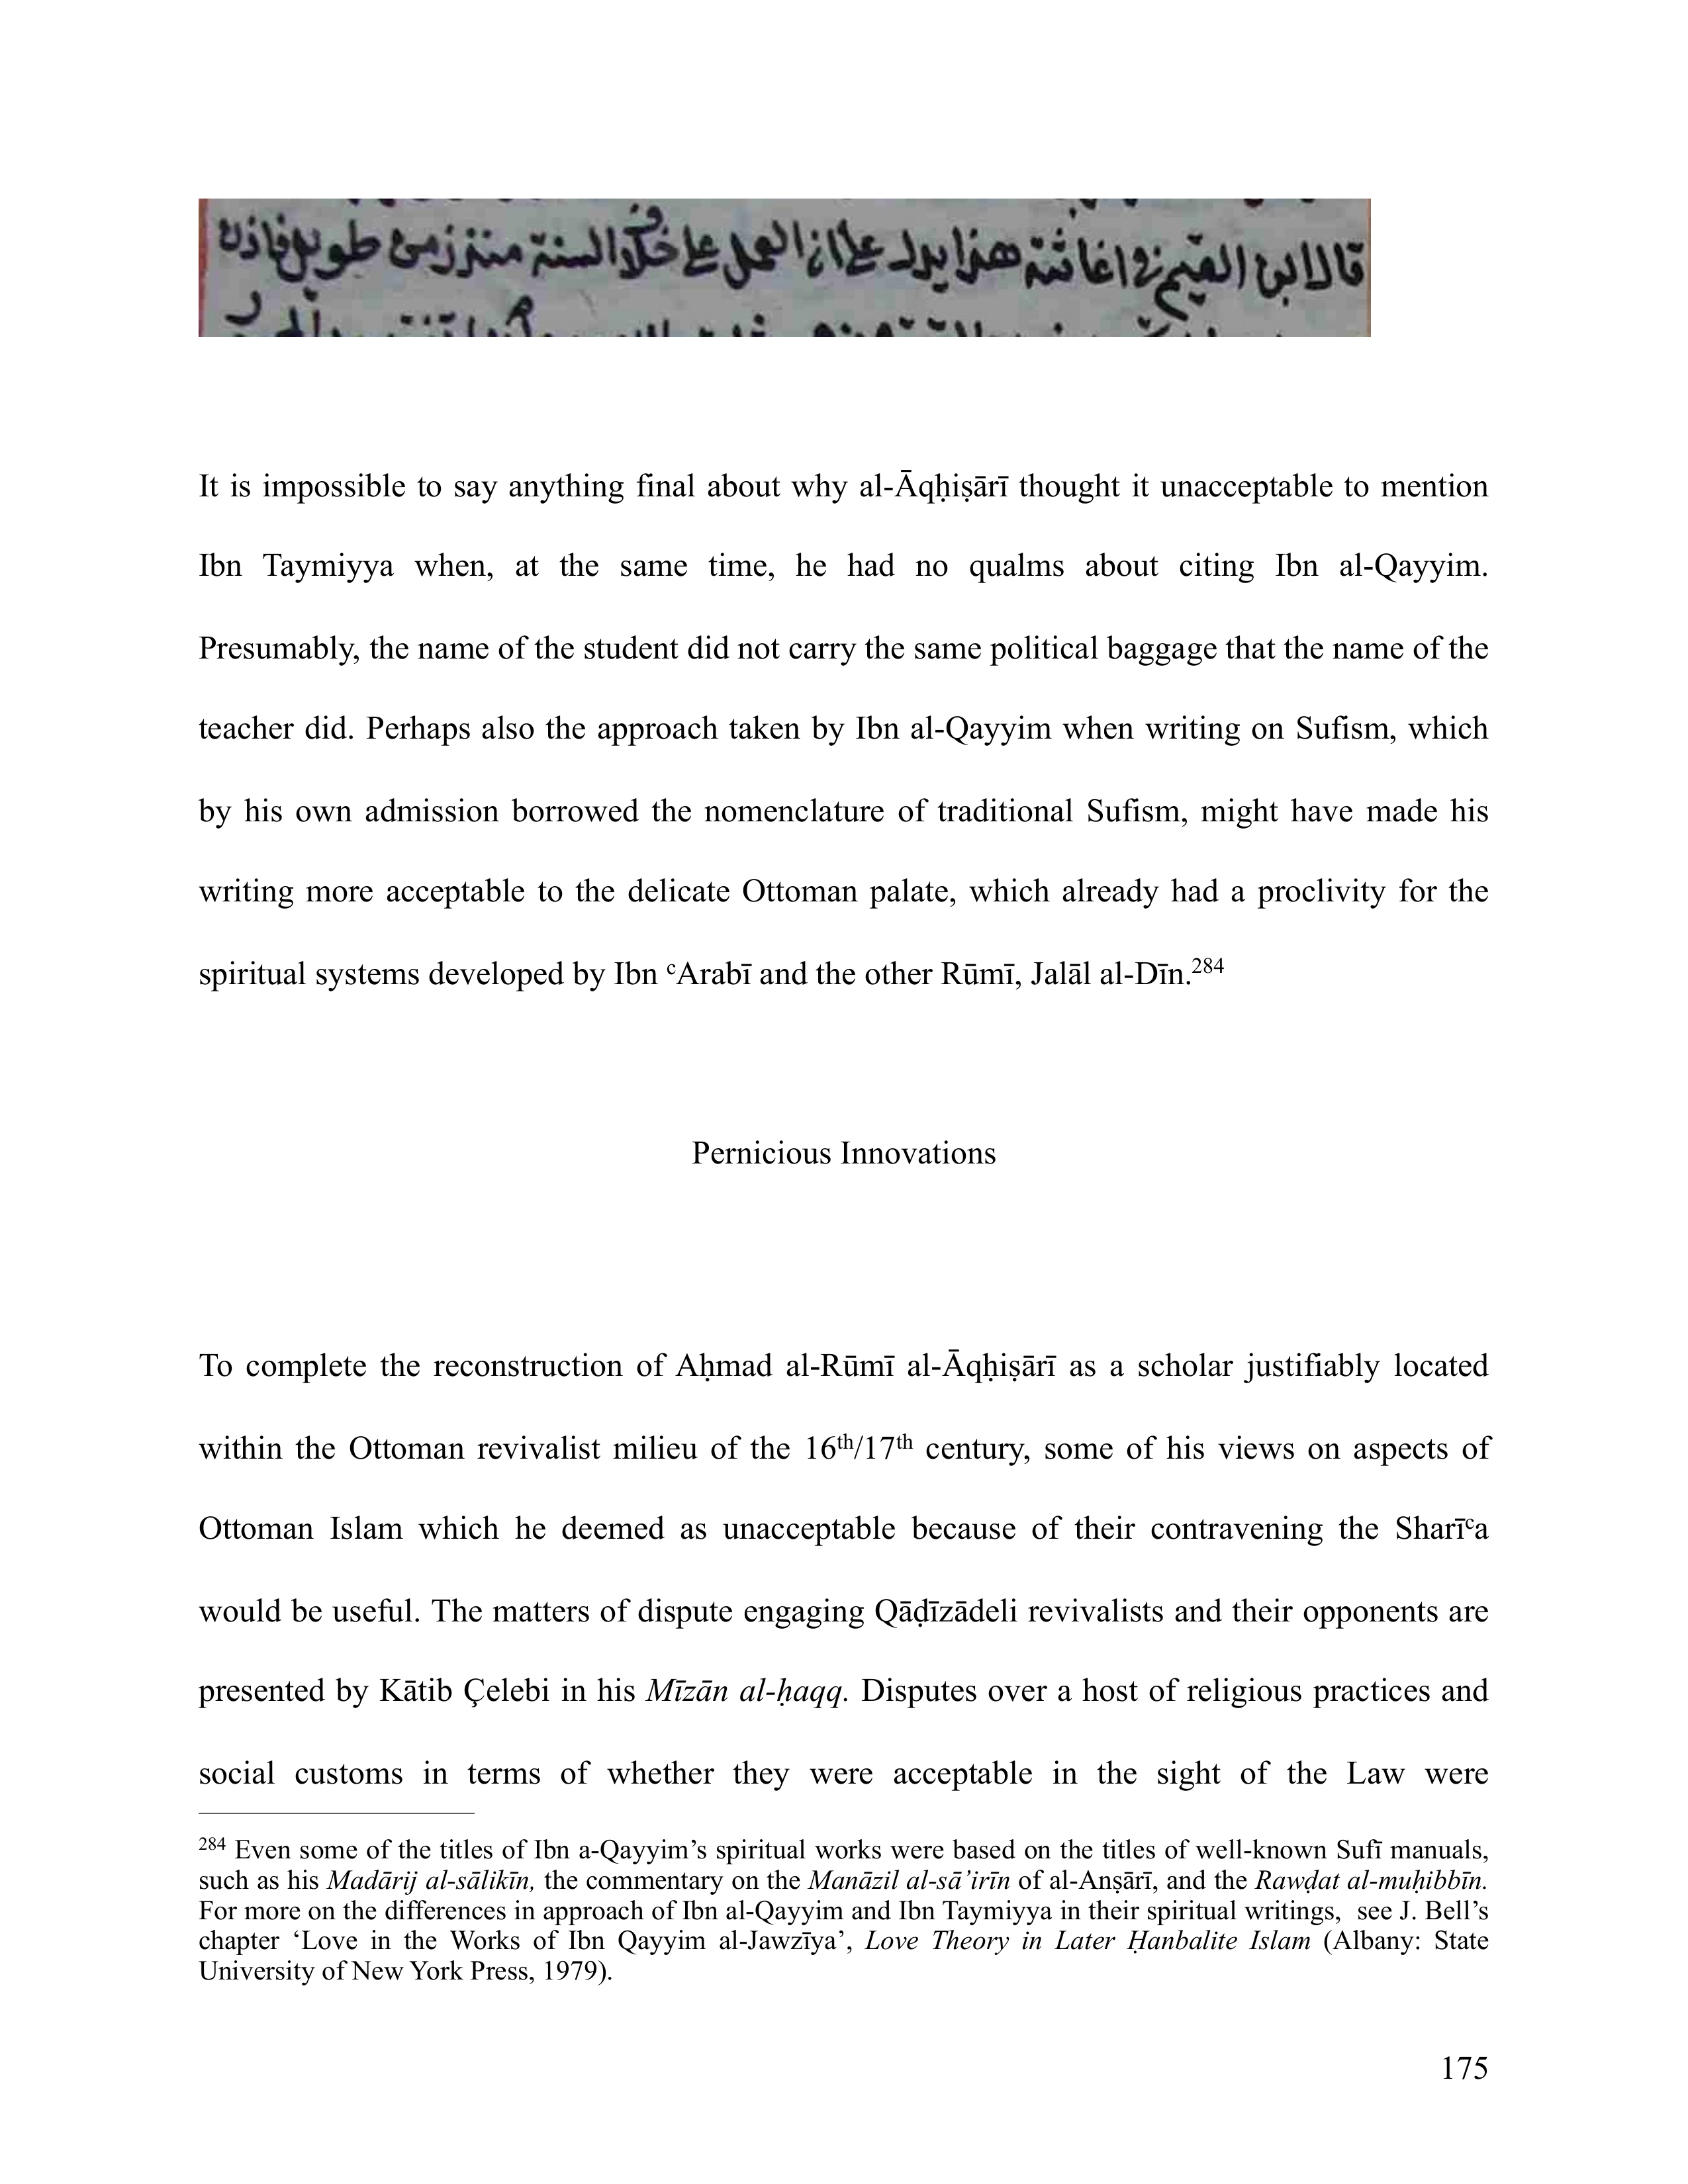 قال ابن القيم في اغاثته هذا يدل على ان العمل على خلاف السنة منذ زمن طويل فاذن
It is impossible to say anything final about why al-Āqḥiṣārī thought it unacceptable to mention
Ibn Taymiyya when, at the same time, he had no qualms about citing Ibn al-Qayyim.
Presumably, the name of the student did not carry the same political baggage that the name of the
teacher did. Perhaps also the approach taken by Ibn al-Qayyim when writing on Sufism, which
by his own admission borrowed the nomenclature of traditional Sufism, might have made his
writing more acceptable to the delicate Ottoman palate, which already had a proclivity for the
spiritual systems developed by Ibn ᶜArabī and the other Rūmī, Jalāl al-Dīn.284
Pernicious Innovations
To complete the reconstruction of Aḥmad al-Rūmī al-Āqḥiṣārī as a scholar justifiably located
within the Ottoman revivalist milieu of the 16th/17th century, some of his views on aspects of
Ottoman Islam which he deemed as unacceptable because of their contravening the Sharīᶜa
would be useful. The matters of dispute engaging Qāḍīzādeli revivalists and their opponents are
presented by Kātib Çelebi in his Mīzān al-ḥaqq. Disputes over a host of religious practices and
social customs in terms of whether they were acceptable in the sight of the Law were
284 Even some of the titles of Ibn a-Qayyim’s spiritual works were based on the titles of well-known Sufī manuals,
such as his Madārij al-sālikīn, the commentary on the Manāzil al-sā’irīn of al-Anṣārī, and the Rawḍat al-muḥibbīn.
For more on the differences in approach of Ibn al-Qayyim and Ibn Taymiyya in their spiritual writings, see J. Bell’s
chapter ‘Love in the Works of Ibn Qayyim al-Jawzīya’, Love Theory in Later Ḥanbalite Islam (Albany: State
University of New York Press, 1979).
175